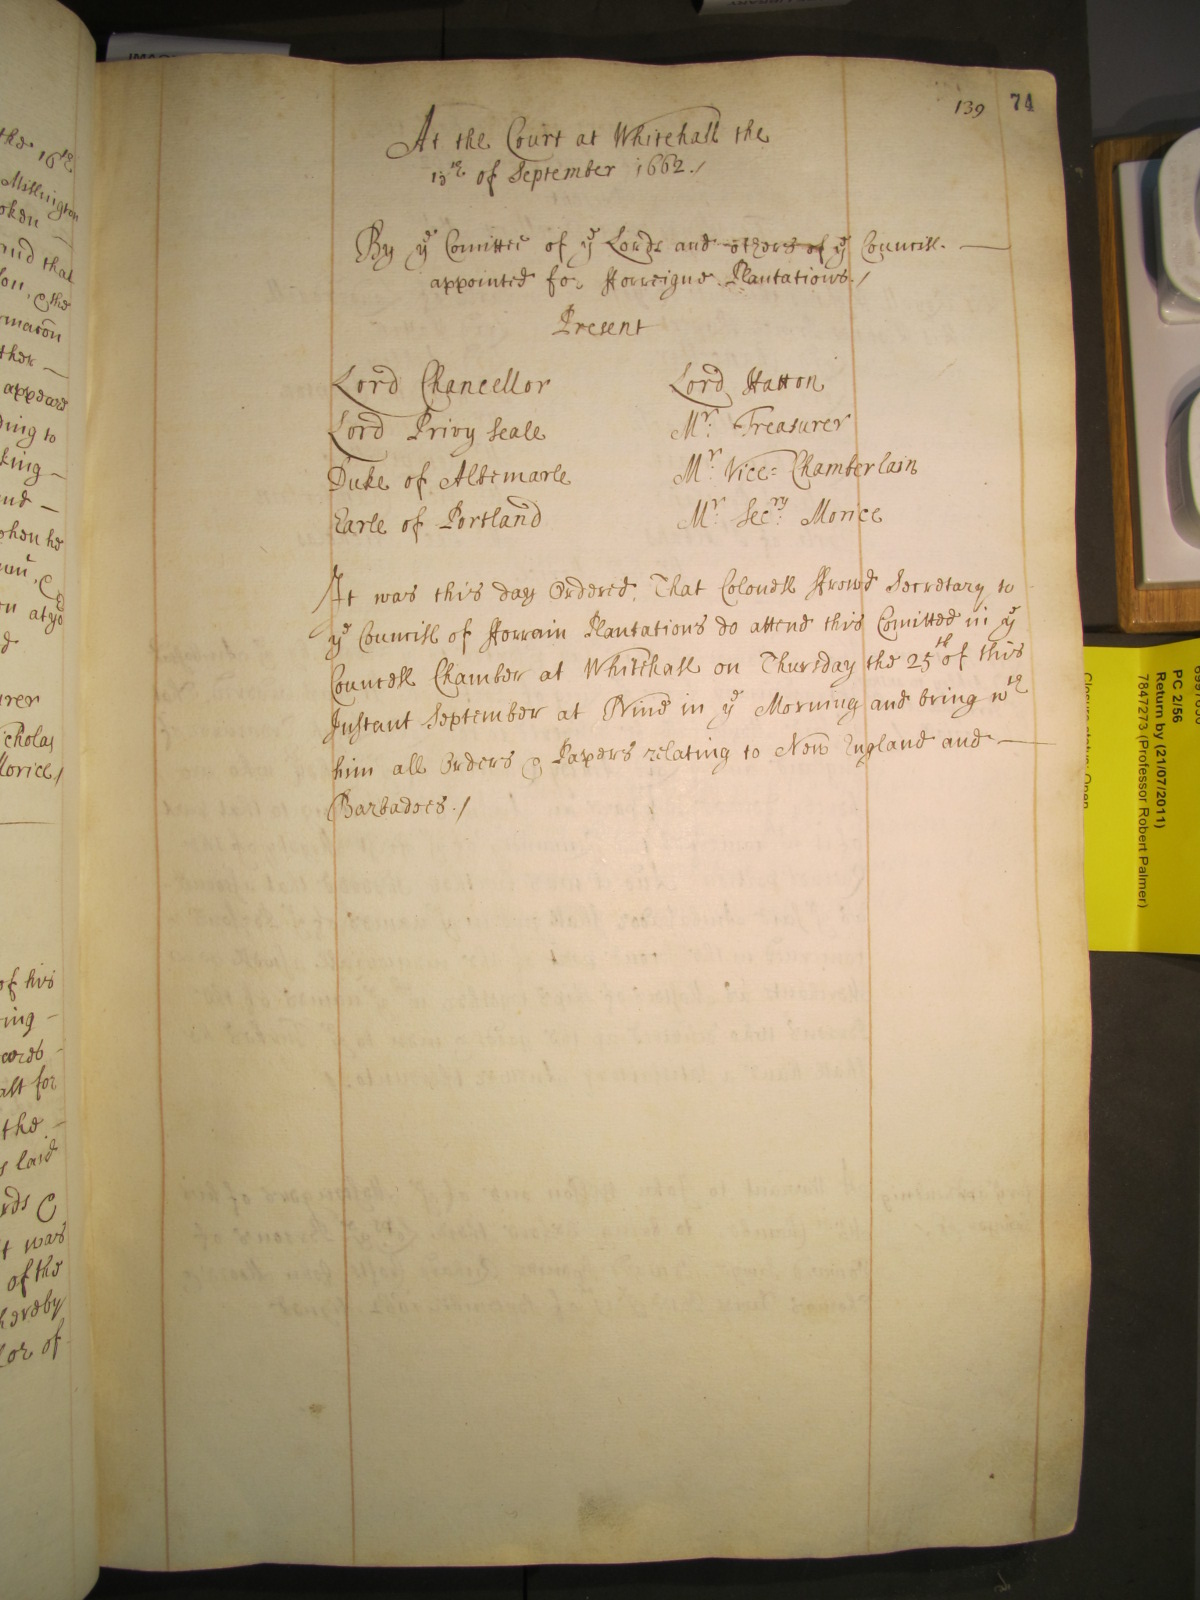 139 74
At the Court at Whitehall the
15th of September 1662./
By ye Comittee of ye Lords and others of ye Councill. —
appointed for fforreigne Plantations./
Present
Lord Chancellor
Lord Privy Seale
Duke of Albemarle
Earle of Portland
Lord Hatton
Mr: Treasurer
Mr: Vice=Chamberlain
Mr: Secry: Morice
It was this day Ordered. That Colonell ffrowd Secretary to
ye Councill of fforrain Plantations do attend this Comittee in ye
Councell Chamber at Whitehall on Thursday the 25th of this
Instant September at Nine in ye Morning and bring wth
him all Orders & Papers relating to New England and —
Barbadoes./
the 16th
Millington
oken —
and that
ther —
appeare
ding to
king —
nd —
when he
urer
icholas
Morice/
of his
ring —
wards —
all for
the —
s laid
rds &
t was
of the
hereby
Lor of
PC 2/56
Return by (21/07/2011)
7847273 (Professor Robert Palmer)
Closure status: Open